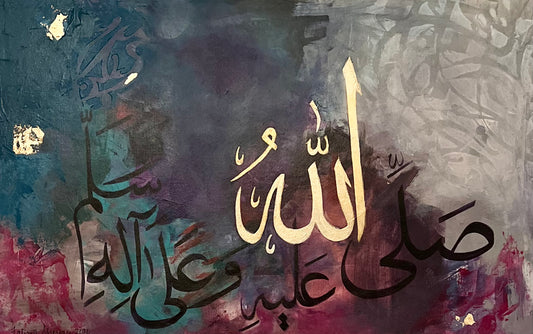 صَلَّى اللهُ عَلَيهِ وَعَلَى آلِهِ سَلَّم